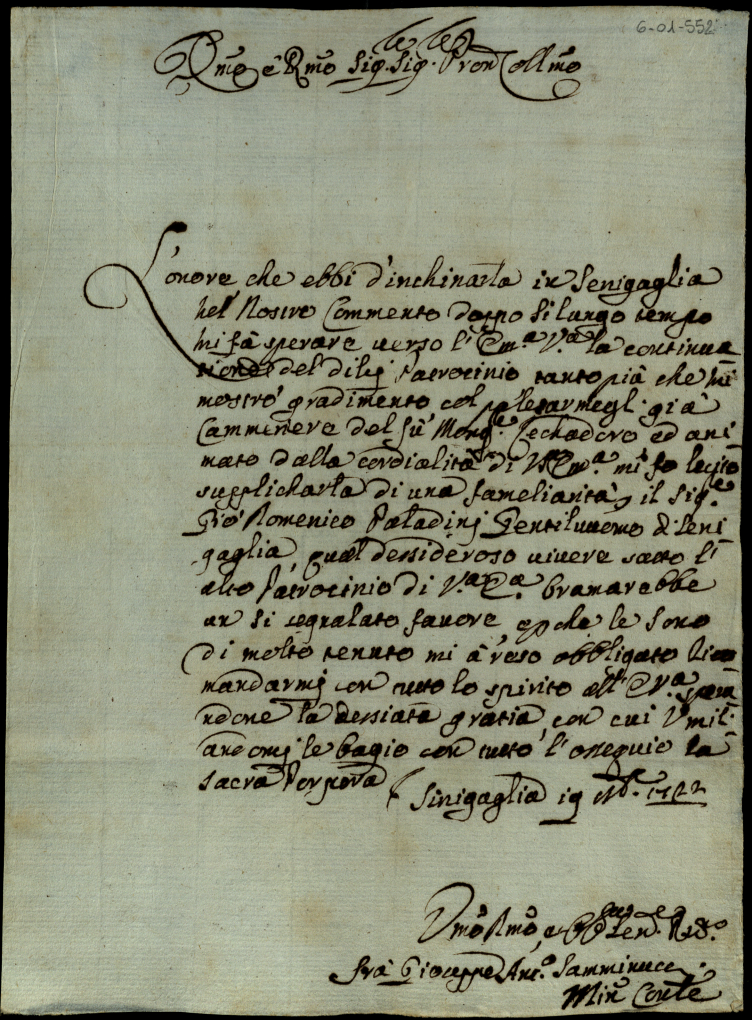 6-01-552
Emo e Rmo Sig.re Sig.re Pron Collmo
L'onore che ebbi d'inchinarla in Senigaglia
nel Nostro Conuento doppo si lungo tempo
mi fà sperare uerso l' Em.a V.a la continua
tione del di lej Patrocinio tanto più che mi
mostrò gradimento col palesarmegli già
Cammeriere del fù Mons.re ed ani
mato dalla cordialità di V. Em.a mi fo lecito
supplicharla di una fameliarità, il Sig.e
Gio Domenico Paladinj Gentiluuomo di Seni
gaglia, qual dessideroso uiuere sotto l'
alto Patrocinio di V.a E.a bramarebbe
un si segnalato fauore e perche le sono
di molto tenuto mi à reso obbligato
mandarmj con tutto lo spirito all' E. V.a speran
done la dessiata gratia, con cui Vmil
andomj le bagio con tutto l'ossequio la
sacra Porpora Sinigaglia 19 1722
Vmo Deuotmo
frà Gioseppe Ant.o Samminucci
Min Conle